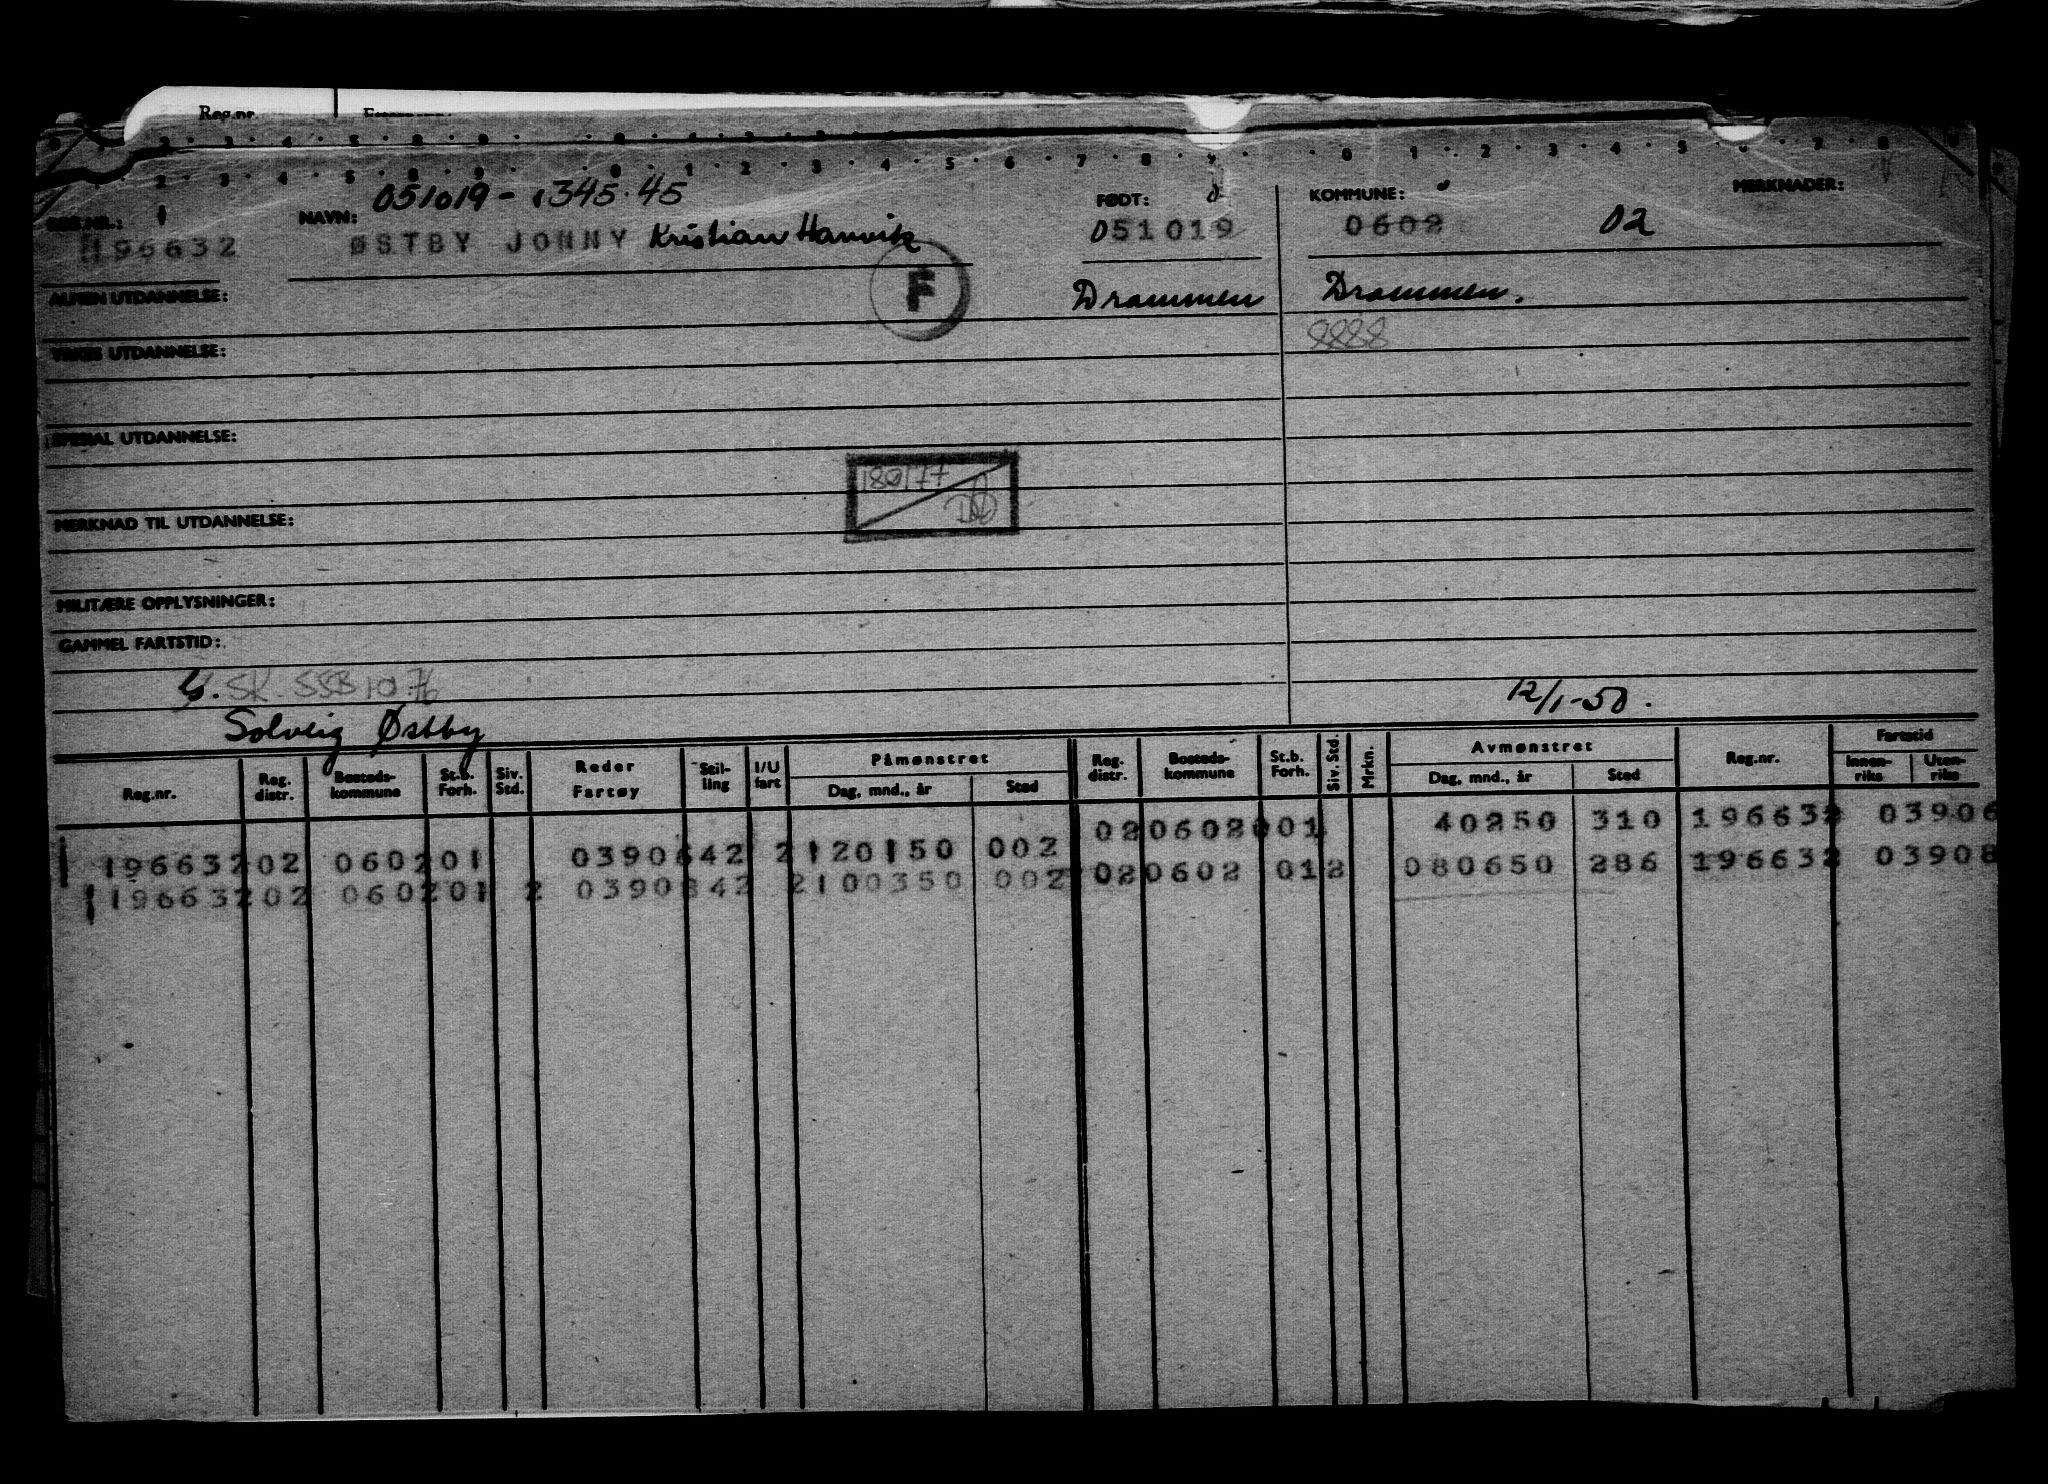 Reg.nr.
051019 - 1345.45
REG.NR.: NAVN: FØDT: KOMMUNE: MERKNADER:
196632 ØSTBY JONNY Kristian Hanvik 051019 0602 02
F
ALMEN UTDANNELSE: Drammen Drammen.
YRKES UTDANNELSE: 8888
SPESIAL UTDANNELSE:
180177
MERKNAD TIL UTDANNELSE:
MILITÆRE OPPLYSNINGER:
GAMMEL FARTSTID:
G. SK. SSB 10.76
Solveig Østby 12/1-50.
Reg.nr. Reg. distr. Bosteds-kommune St.b. Forh. Siv. Std. Reder Fartøy Stil-ling I/U fart Påmønstret Dag, mnd., år Sted Reg. distr. Bosteds-kommune St.b. Forh. Siv. Std. Mrkn. Avmønstret Dag, mnd., år Sted Reg.nr. Fartstid Innen-riks Uten-riks
196632 02 0602 01 03906 42 2 120150 002 02 0602 001 40250 310 196632 03906
196632 02 0602 01 2 03908 42 2 100350 002 02 0602 01 2 080650 286 196632 03908